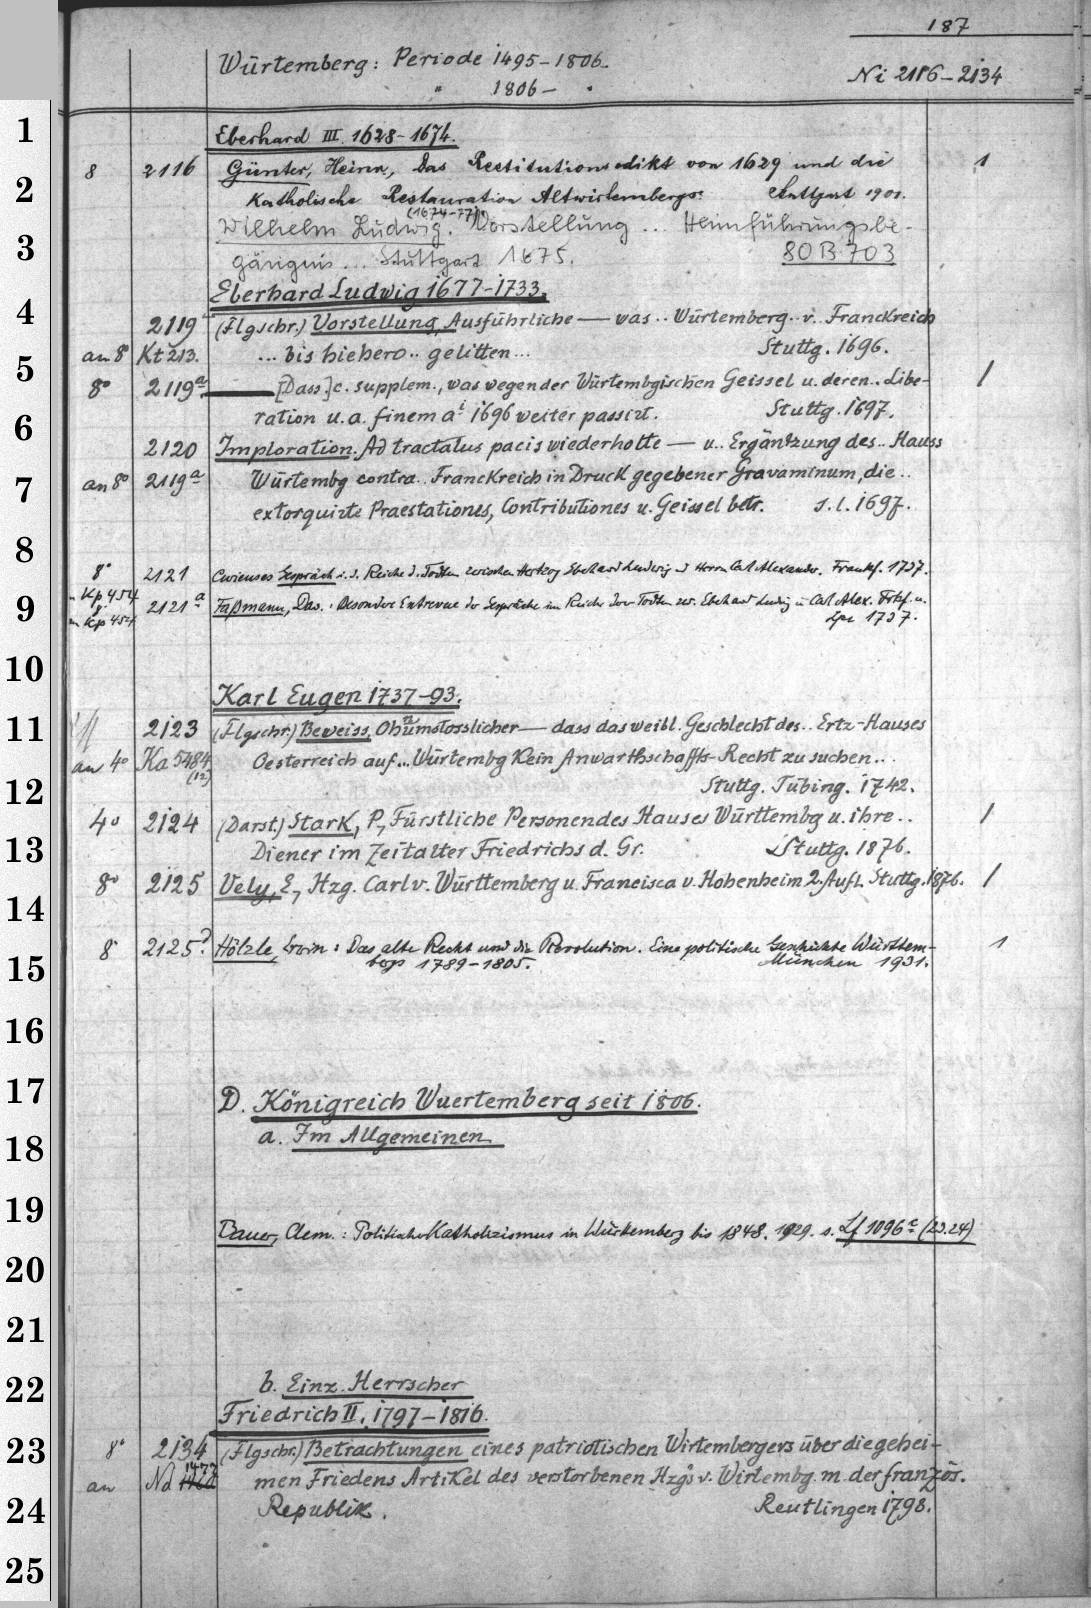 187
Würtemberg: Periode 1495-1806.
" 1806- .
Ni 2116-2134
1
Eberhard III. 1628-1674.
8 2116 Günter, Heinr., Das Restitutionsedikt von 1629 und die 1
2
Katholische Restauration Altwirtembergs. Stuttgart 1901.
Wilhelm Ludwig. (1674-77). Vorstellung ... Heimführungsbe-
3
gängnis ... Stuttgart 1675. 80 B 703
Eberhard Ludwig 1677-1733.
4
2119 (Flgschr.) Vorstellung, Ausführliche — was .. Würtemberg .. v. Franckreich
an 8° Kt 213. ... bis hiehero .. gelitten ... Stuttg. 1696.
5
8° 2119a — [Dass.] c. supplem., was wegen der Würtembgischen Geissel u. deren .. Libe- 1
ration u. a. finem ai 1696 weiter passirt. Stuttg. 1697.
6
2120 Imploration. Ad tractatus pacis wiederholte — u .. Ergäntzung des .. Hauss
7
an 8° 2119a Würtembg contra .. Franckreich in Druck gegebener Gravaminum, die ..
extorquirte Praestationes, Contributiones u. Geissel betr. s. l. 1697.
8
8° 2121 Curieuses Gespräch i. d. Reiche d. Todten zwischen Hertzog Eberhard Ludwig u Herrn Carl Alexander. Frankf. 1737.
Kp 454
9
8° 2121a Faßmann, Dav.: Besondere Entrevue der Gespräche im Reiche derer Todten zw. Eberhard Ludwig u Carl Alex. Frkf. u.
Kp 454 Lpz 1737.
10
Karl Eugen 1737-93.
11
2123 (Flgschr.) Beweiss, Ohnumstosslicher — dass das weibl. Geschlecht des .. Ertz-Hauses
an 4° Ka 5484 (12) Oesterreich auf .. Würtembg Kein Anwarthschaffts-Recht zu suchen ..
12
Stuttg. Tübing. 1742.
4° 2124 (Darst.) Stark, P., Fürstliche Personen des Hauses Württembg u. ihre .. 1
13
Diener im Zeitalter Friedrichs d. Gr. Stuttg. 1876.
8° 2125 Vely, E., Hzg. Carl v. Württemberg u. Francisca v. Hohenheim 2. Aufl. Stuttg. 1876. 1
14
8° 2125? Hölzle, Erwin: Das alte Recht und die Revolution. Eine politische Geschichte Württem- 1
15
bergs 1789-1805. München 1931.
16
17
D. Königreich Wuertemberg seit 1806.
18
a. Im Allgemeinen
19
Bauer, Clem.: Politischer Katholizismus in Württemberg bis 1848. 1929. s. Lf 1096c (23.24)
20
21
22
b. Einz. Herrscher
Friedrich II. 1797-1816.
23
8° 2134 (Flgschr.) Betrachtungen eines patriotischen Wirtembergers über die gehei-
an Nd men Friedens Artikel des verstorbenen Hzgs v. Wirtembg. m. der französ.
24
Republik. Reutlingen 1798.
25